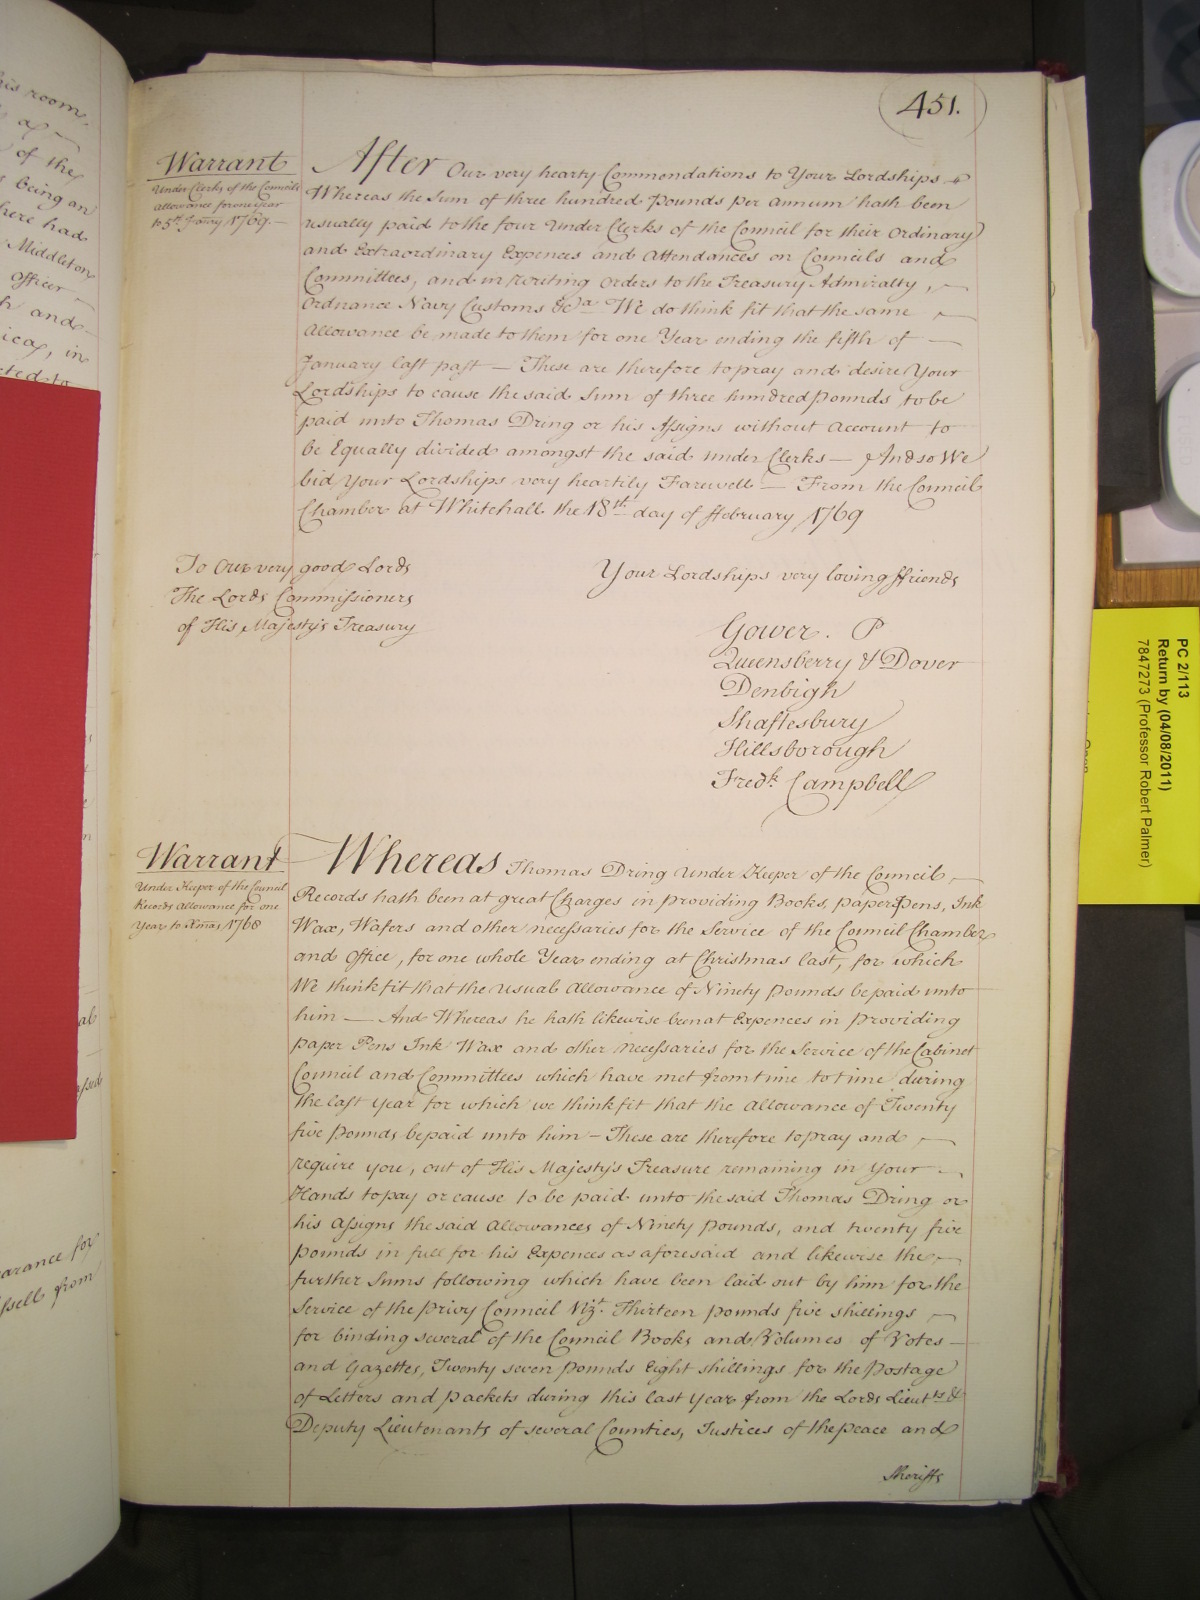 451.
Warrant
Under Clerks of the Council
Allowance for one year
to 5th Janry 1769.
After Our very hearty Commendations to Your Lordships
Whereas the Sum of three hundred Pounds per annum hath been
usually paid to the four under Clerks of the Council for their Ordinary
and Extraordinary Expences and Attendances on Councils and
Committees, and in writing Orders to the Treasury Admiralty,
Ordnance Navy Customs &ca We do think fit that the same
Allowance be made to them for one Year ending the fifth of
January last past — These are therefore to pray and desire Your
Lordships to cause the said Sum of three hundred pounds to be
paid unto Thomas Dring or his Assigns without Account to
be Equally divided amongst the said under Clerks — And so We
bid Your Lordships very heartily Farewell — From the Council
Chamber at Whitehall the 18th day of ffebruary 1769
To Our very good Lords
The Lords Commissioners
of His Majesty's Treasury
Your Lordships very loving ffriends
Gower. P
Queensberry & Dover
Denbigh
Shaftesbury
Hillsborough
Fredk Campbell
Warrant
Under Keeper of the Council
Records Allowance for one
Year to Xmas 1768
Whereas Thomas Dring Under Keeper of the Council
Records hath been at great Charges in providing Books, paper Pens, Ink
Wax, Wafers and other necessaries for the Service of the Council Chamber
and Office, for one whole Year ending at Christmas last, for which
We think fit that the usual Allowance of Ninety pounds be paid unto
him — And Whereas he hath likewise been at Expences in providing
paper Pens Ink Wax and other Necessaries for the Service of the Cabinet
Council and Committees which have met from time to time during
the last year for which we think fit that the Allowance of Twenty
five pounds be paid unto him — These are therefore to pray and
require you, out of His Majesty's Treasure remaining in your
Hands to pay or cause to be paid unto the said Thomas Dring or
his Assigns the said Allowances of Ninety pounds, and twenty five
pounds in full for his Expences as aforesaid and likewise the
further Sums following which have been laid out by him for the
Service of the Privy Council Vizt. Thirteen pounds five shillings
for binding several of the Council Books and Volumes of Votes
and Gazettes, Twenty seven pounds Eight shillings for the Postage
of Letters and packets during this last Year from the Lords Lieuts &
Deputy Lieutenants of several Counties, Justices of the peace and
Sheriffs
his room,
of the
being an
here had
Middleton
Officer
and
in
cted to
arance for
ssell from
PC 2/113
Return by (04/08/2011)
7847273 (Professor Robert Palmer)